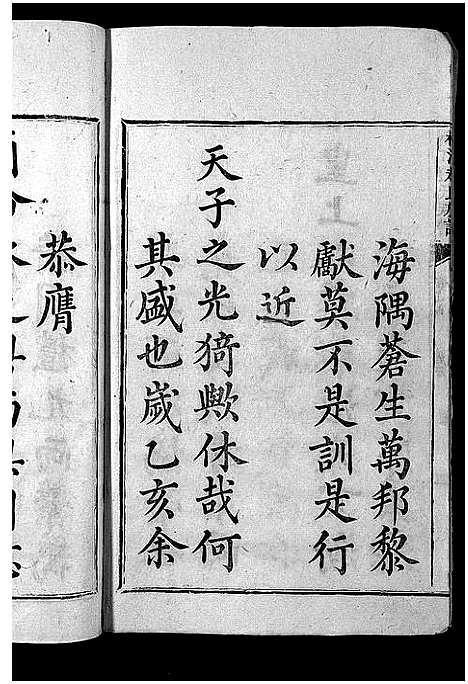 海隅蒼生萬邦黎
獻莫不是訓是行
以近
天子之光猗歟休哉何
其盛也歲乙亥余
恭膺